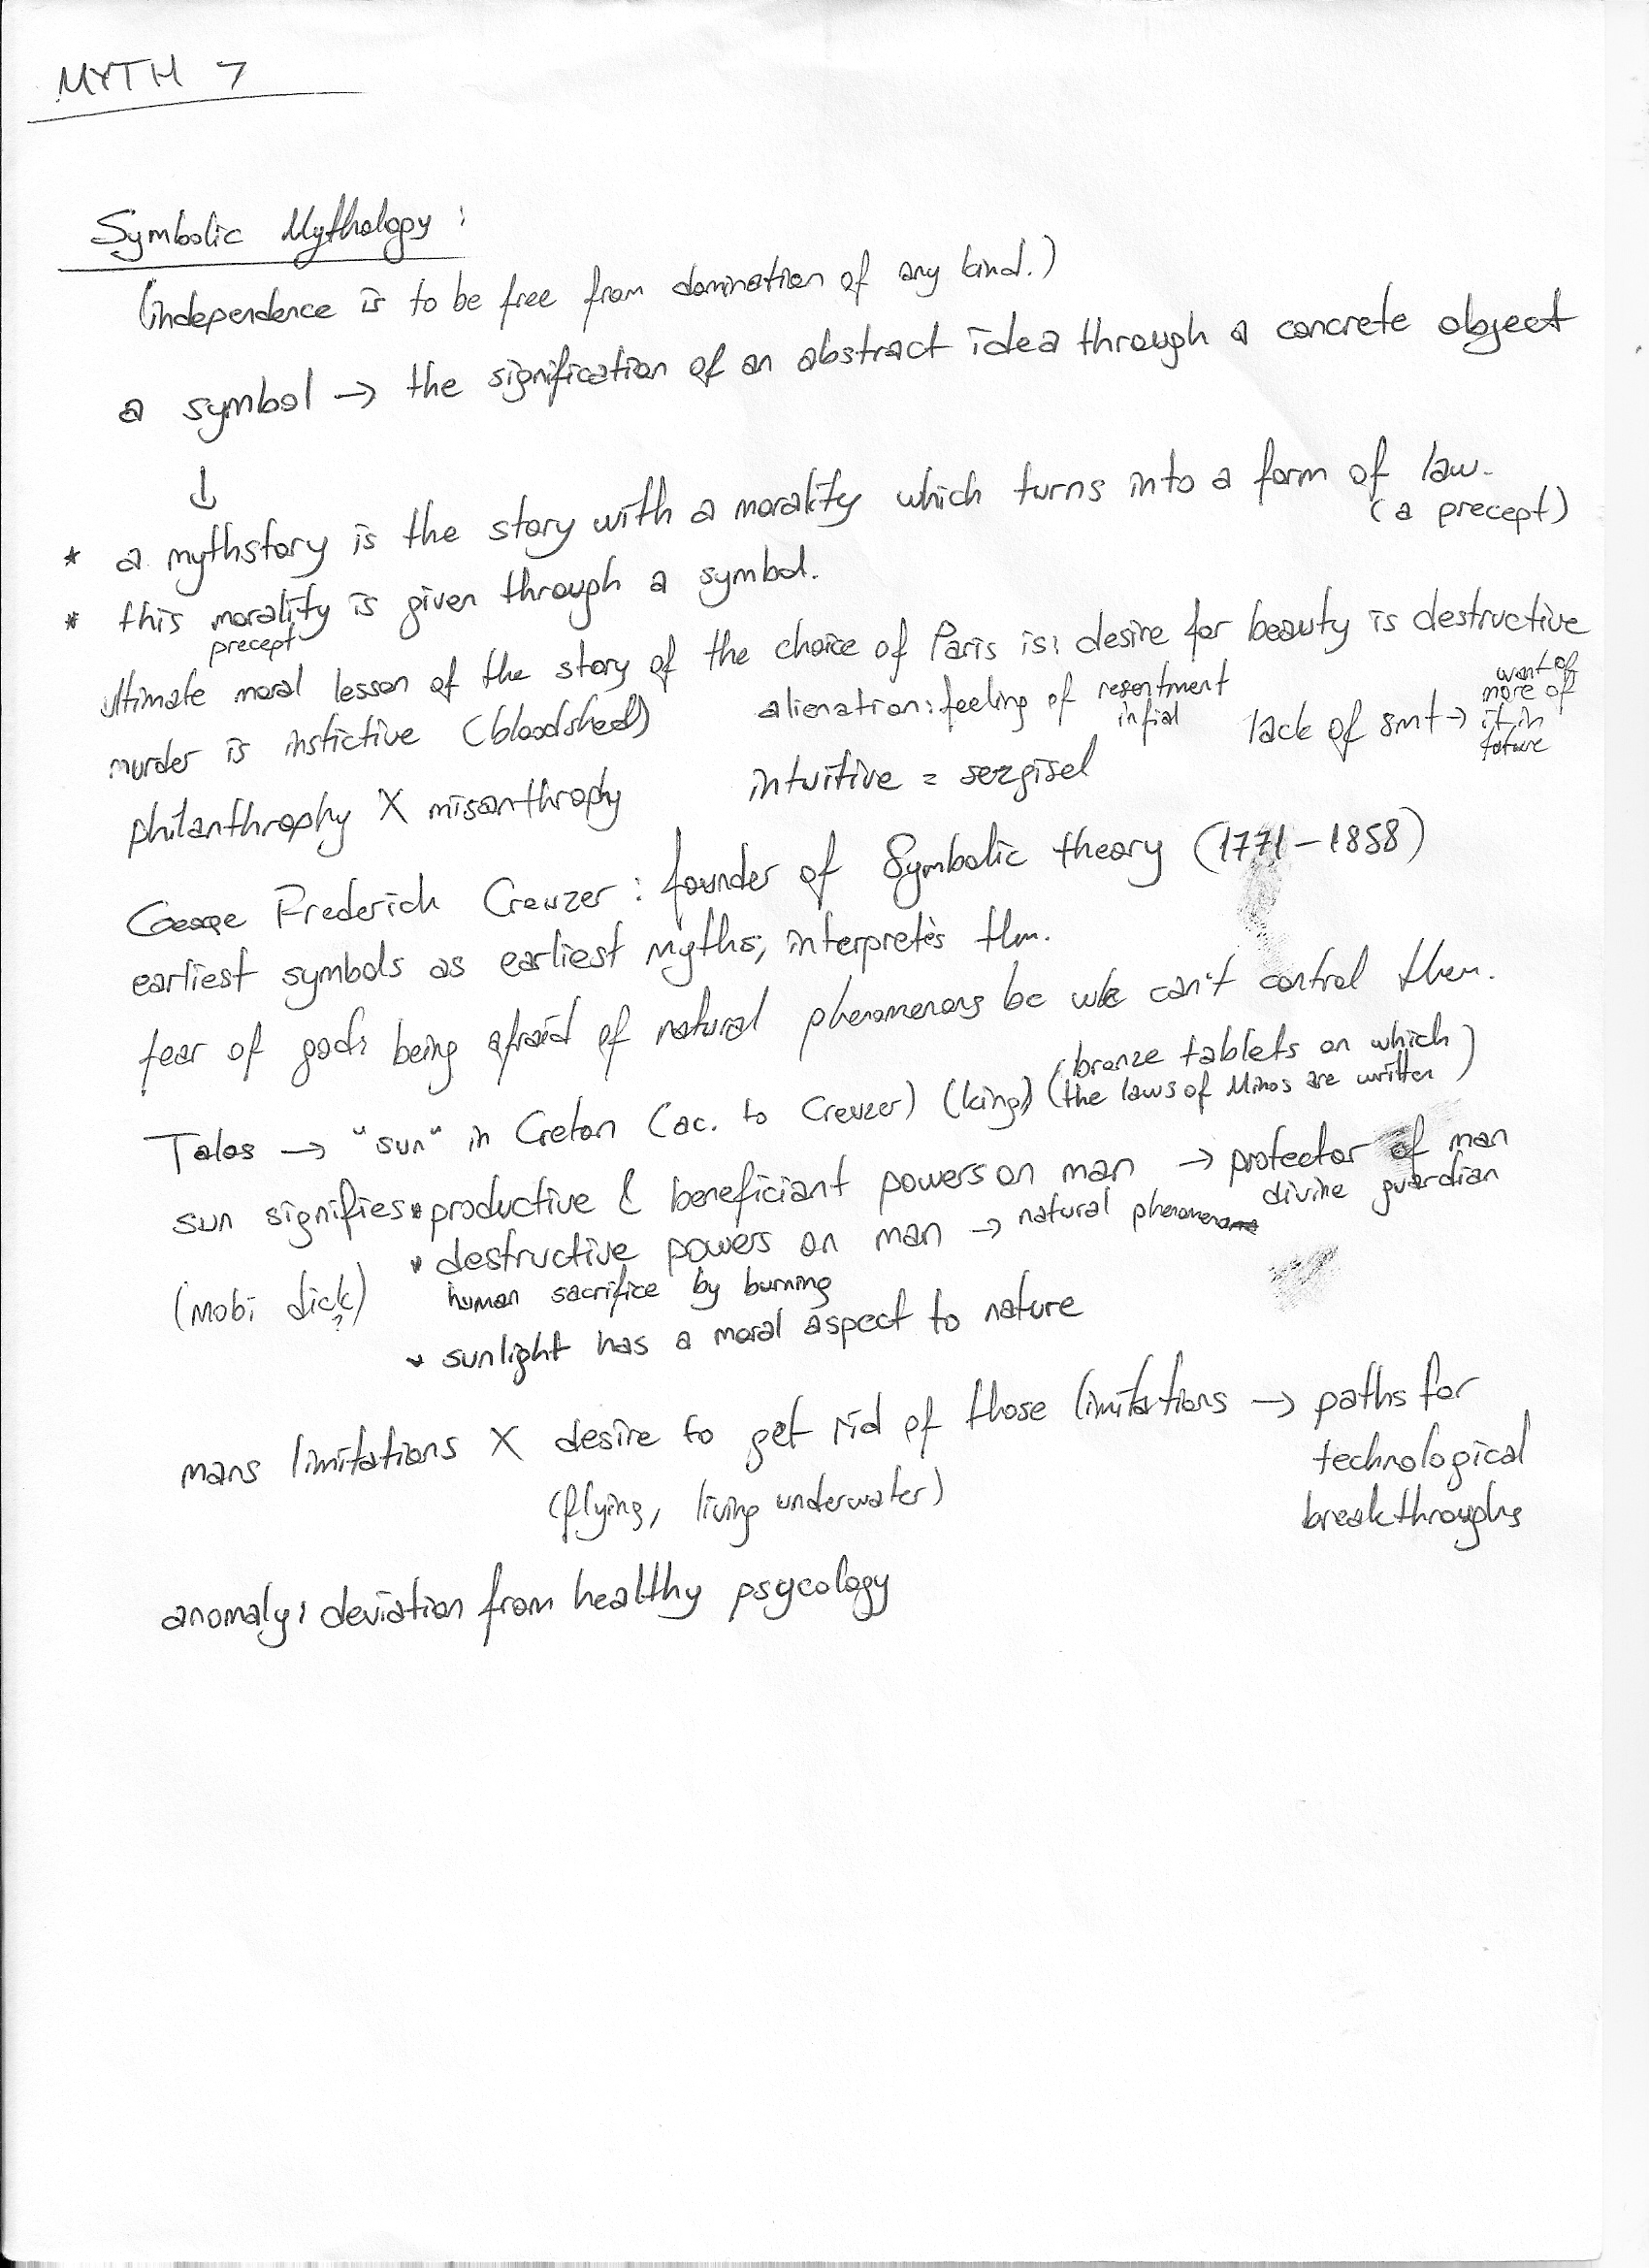 MYTH 7
Symbolic Mythology :
(independence is to be free from domination of any kind.)
a symbol → the signification of an abstract idea through a concrete object
↓
* a mythstory is the story with a morality which turns into a form of law.
(a precept)
* this morality is given through a symbol.
precept
ultimate moral lesson of the story of the choice of Paris is: desire for beauty is destructive
murder is instictive (bloodshed) alienation: feeling of resentment lack of smt → want of more of it in future
infial
philanthrophy X misanthrophy intuitive = sezgisel
George Frederich Creuzer : founder of Symbolic theory (1771-1858)
earliest symbols as earliest myths, interpretes thm.
fear of god: being afraid of natural phenomenons bc we can't control them.
Talos → "sun" in Creton (ac. to Creuzer) (king) (bronze tablets on which
the laws of Minos are written)
sun signifies * productive & beneficiant powers on man → protector of man
divine guardian
* destructive powers on man → natural phenomena
(mobi dick) human sacrifice by burning
?
* sunlight has a moral aspect to nature
mans limitations X desire to get rid of those limitations → paths for
technological
(flying, living underwater) breakthroughs
anomaly: deviation from healthy psycology